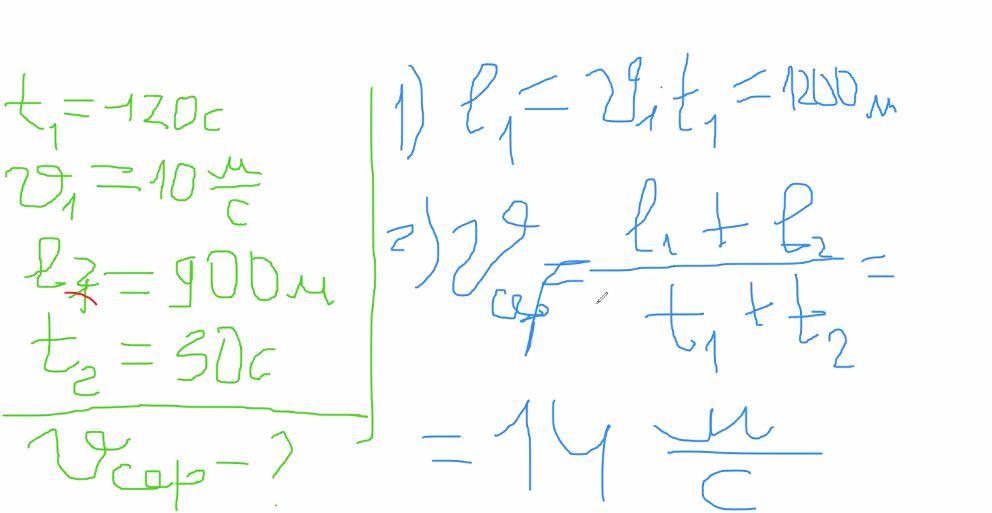 t₁ = 120с
υ₁ = 10 м/с
l₂ = 900м
t₂ = 30с
υср - ?
1) l₁ = υ₁t₁ = 1200м
2) υср = (l₁ + l₂)/(t₁ + t₂) =
= 14 м/с